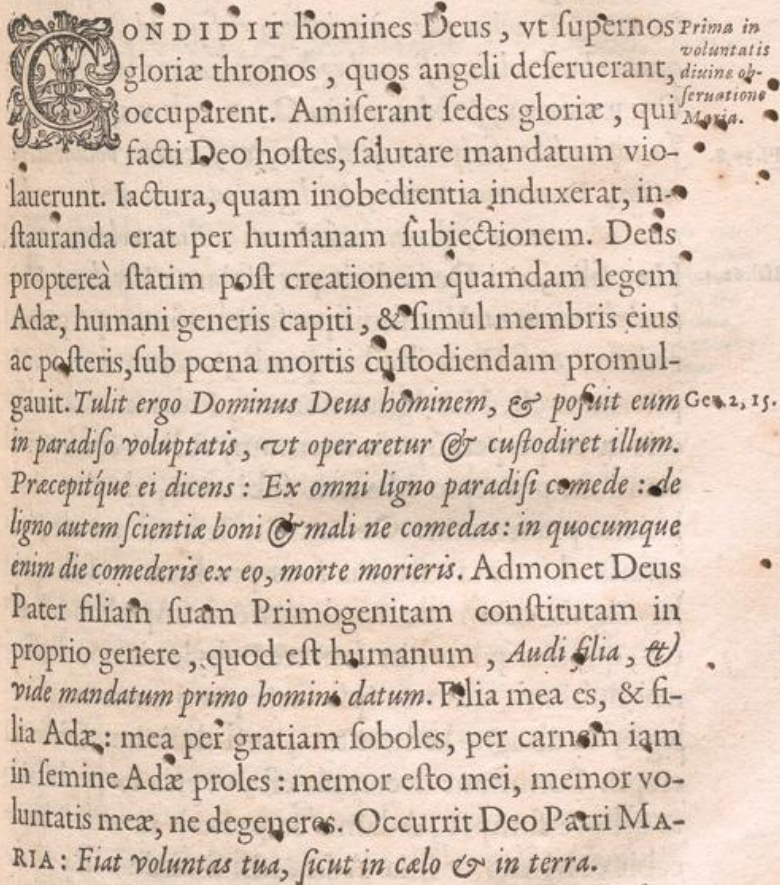 CONDIDIT homines Deus, vt ſupernos
gloriæ thronos, quos angeli deſeruerant,
occuparent. Amiſerant ſedes gloriæ, qui
facti Deo hoſtes, ſalutare mandatum vio-
lauerunt. Iactura, quam inobedientia induxerat, in-
ſtauranda erat per humanam ſubiectionem. Deus
proptereà ſtatim poſt creationem quamdam legem
Adæ, humani generis capiti, & ſimul membris eius
ac poſteris, ſub pœna mortis cuſtodiendam promul-
gauit. Tulit ergo Dominus Deus hominem, & poſuit eum
in paradiſo voluptatis, vt operaretur & cuſtodiret illum.
Præcepitque ei dicens: Ex omni ligno paradiſi comede: de
ligno autem ſcientiæ boni & mali ne comedas: in quocumque
enim die comederis ex eo, morte morieris. Admonet Deus
Pater filiam ſuam Primogenitam conſtitutam in
proprio genere, quod eſt humanum, Audi filia, &
vide mandatum primo homini datum. Filia mea es, & fi-
lia Adæ: mea per gratiam ſoboles, per carnem iam
in ſemine Adæ proles: memor eſto mei, memor vo-
luntatis meæ, ne degeneres. Occurrit Deo Patri MA-
RIA: Fiat voluntas tua, ſicut in cælo & in terra.
Prima in
voluntatis
diuine ob-
ſeruatione
Maria.
Gen. 2, 15.